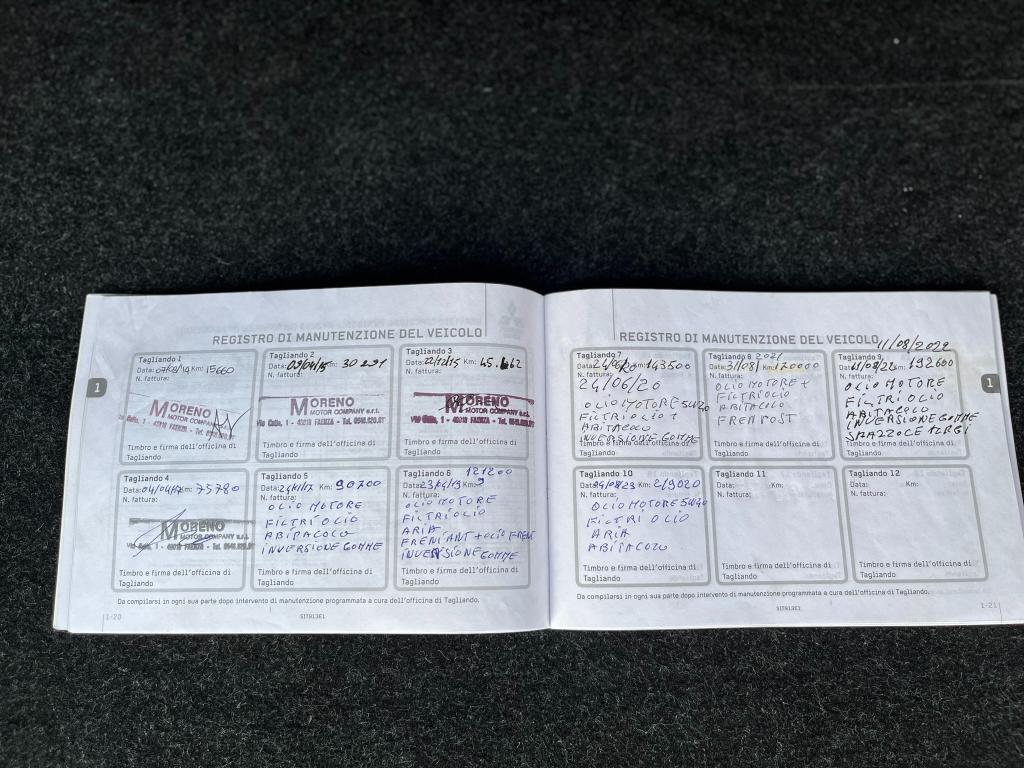 REGISTRO DI MANUTENZIONE DEL VEICOLO
Tagliando 1
Data: 07/08/14 Km: 15660
N. fattura:
MORENO
MOTOR COMPANY s.r.l.
Timbro e firma dell'officina di
Tagliando
Tagliando 2
Data: 09/04/15 Km: 30 291
N. fattura:
MORENO
MOTOR COMPANY s.r.l.
Timbro e firma dell'officina di
Tagliando
Tagliando 3
Data: 22/12/15 Km:
N. fattura:
MORENO
MOTOR COMPANY s.r.l.
Timbro e firma dell'officina di
Tagliando
1
Tagliando 4
Data: 04/04/17 Km: 75780
N. fattura:
MORENO
MOTOR COMPANY s.r.l.
Timbro e firma dell'officina di
Tagliando
Tagliando 5
Data: Km: 90700
N. fattura:
OLIO MOTORE
FILTRI OLIO
ABITACOLO
INVERSIONE GOMME
Timbro e firma dell'officina di
Tagliando
Tagliando 6 121200
Data: Km:
N. fattura:
OLIO MOTORE
FILTRI OLIO
ARIA
FRENI ANT + OLIO FRENI
INVERSIONE GOMME
Timbro e firma dell'officina di
Tagliando
Da compilarsi in ogni sua parte dopo intervento di manutenzione programmata a cura dell'officina di Tagliando.
1-20
SIT813E1
REGISTRO DI MANUTENZIONE DEL VEICOLO
11/08/2022
Tagliando 7
Data: Km: 143500
N. fattura:
24/06/20
OLIO MOTORE 5W40
FILTRI OLIO +
ABITACOLO
INVERSIONE GOMME
Timbro e firma dell'officina di
Tagliando
Tagliando 8 2021
Data: 31/08/ Km:
N. fattura:
OLIO MOTORE +
FILTRI OLIO
ABITACOLO
FRENI POST
Timbro e firma dell'officina di
Tagliando
Tagliando 9
Data: 11/08/22 Km: 192600
N. fattura:
OLIO MOTORE
FILTRI OLIO
ABITACOLO
INVERSIONE GOMME
SPAZZOLE TERGI
Tagliando
1
Tagliando 10
Data: Km: 219020
N. fattura:
OLIO MOTORE 5W40
FILTRI OLIO
ARIA
ABITACOLO
Timbro e firma dell'officina di
Tagliando
Tagliando 11
Data: Km:
N. fattura:
Timbro e firma dell'officina di
Tagliando
Tagliando 12
Data: Km:
N. fattura:
Timbro e firma dell'officina di
Tagliando
Da compilarsi in ogni sua parte dopo intervento di manutenzione programmata a cura dell'officina di Tagliando.
SIT813E1
1-21